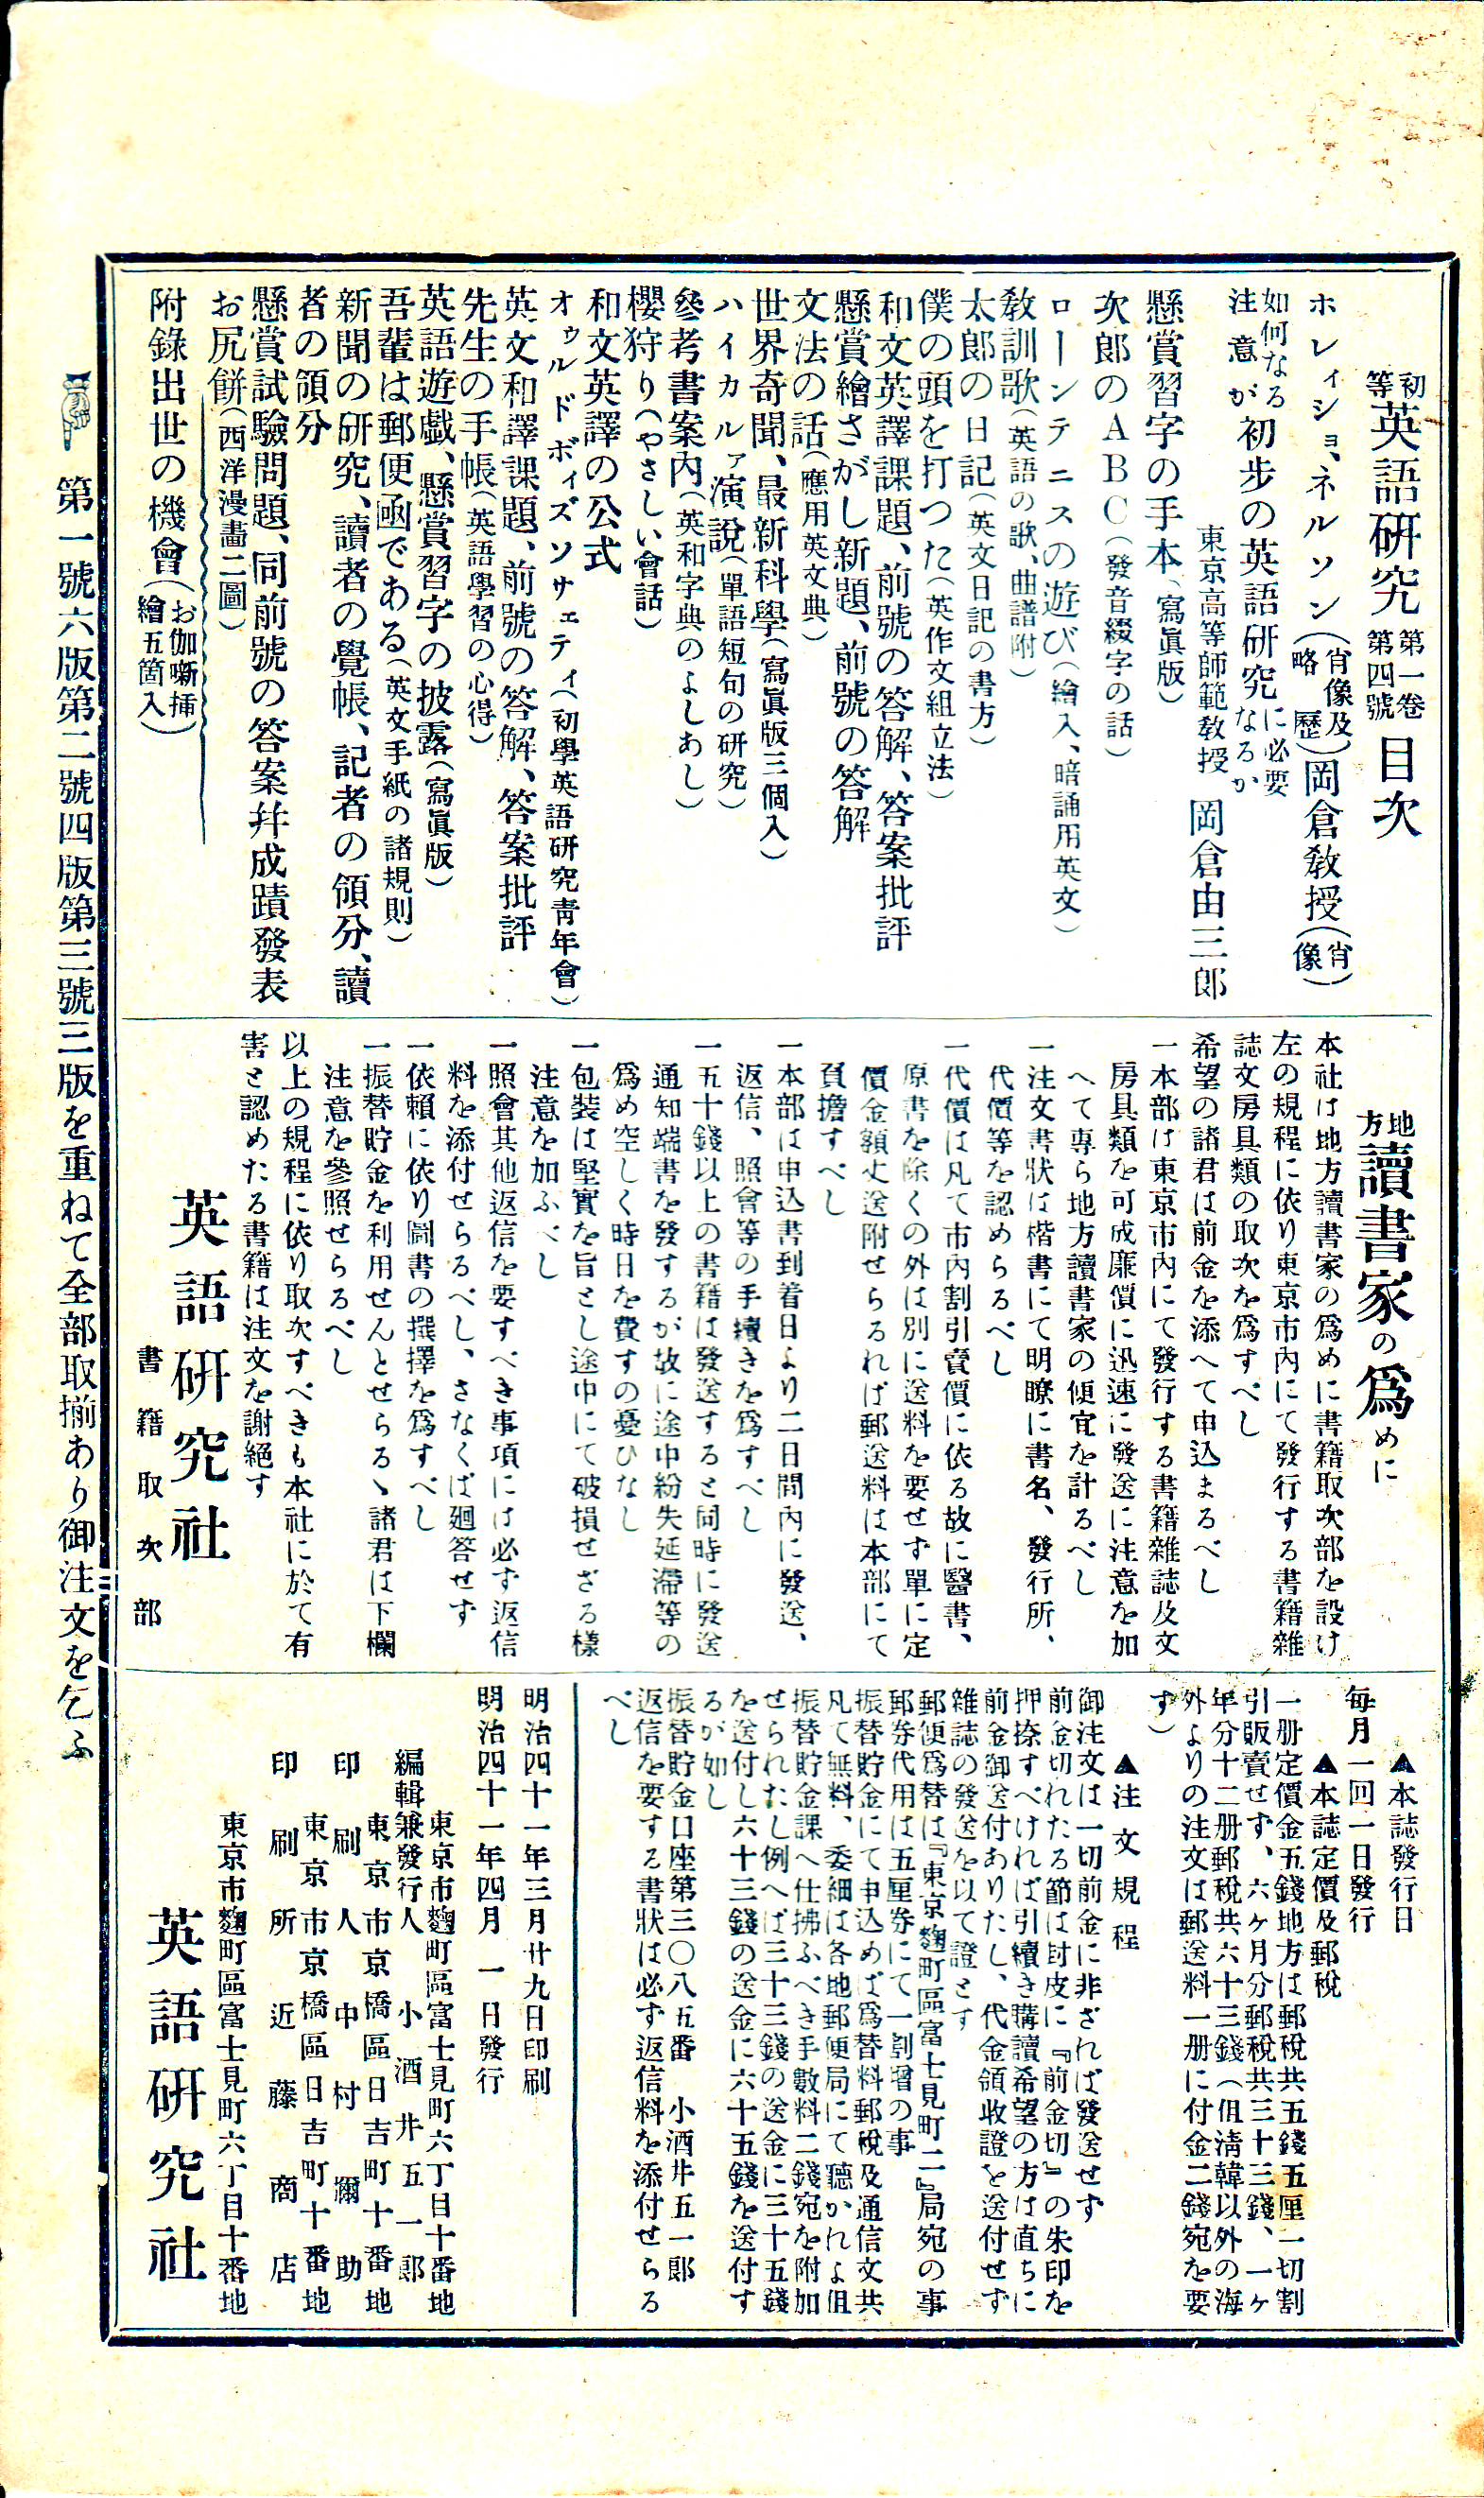 初等英語研究 第一卷第四號 目次
ホレィショ、ネルソン(肖像及略歷)岡倉教授(肖像)
如何なる注意が初步の英語研究に必要なるか
東京高等師範教授 岡倉由三郎
懸賞習字の手本(寫眞版)
次郎のABC(發音綴字の話)
ローンテニスの遊び(繪入、暗誦用英文)
敎訓歌(英語の歌、曲譜附)
太郎の日記(英文日記の書方)
僕の頭を打つた(英作文組立法)
和文英譯課題、前號の答解、答案批評
懸賞繪さがし新題、前號の答解
文法の話(應用英文典)
世界奇聞、最新科學(寫眞版三個入)
ハイカルァ演說(單語短句の硏究)
參考書案內(英和字典のよしあし)
櫻狩り(やさしい會話)
和文英譯の公式
オゥルドボィズソサェティ(初學英語硏究靑年會)
英文和譯課題、前號の答解、答案批評
先生の手帳(英語學習の心得)
英語遊戱、懸賞習字の披露(寫眞版)
吾輩は郵便凾である(英文手紙の諸規則)
新聞の硏究、讀者の覺帳、記者の領分、讀
者の領分
懸賞試驗問題、同前號の答案幷成蹟發表
お尻餅(西洋漫畵二圖)
附錄出世の機會(お伽噺揷繪五箇入)
地方讀書家の爲めに
本社は地方讀書家の爲めに書籍取次部を設け
左の規程に依り東京市內にて發行する書籍雜
誌文房具類の取次を爲すべし
希望の諸君は前金を添へて申込まるべし
一本部は東京市內にて發行する書籍雜誌及文
房具類を可成廉價に迅速に發送に注意を加
へて專ら地方讀書家の便宜を計るべし
一注文書狀は楷書にて明瞭に書名、發行所、
代價等を認めらるべし
一代價は凡て市內割引賣價に依る故に醫書、
原書を除くの外は別に送料を要せず單に定
價金額丈送附せらるれば郵送料は本部にて
負擔すべし
一本部は申込書到着日より二日間內に發送、
返信、照會等の手續きを爲すべし
一五十錢以上の書籍は發送すると同時に發送
通知端書を發するが故に途中紛失延滯等の
爲め空しく時日を費すの憂ひなし
一包裝は堅實を旨とし途中にて破損せざる樣
注意を加ふべし
一照會其他返信を要すべき事項には必ず返信
料を添付せらるべし、さなくば廻答せず
一依賴に依り圖書の撰擇を爲すべし
一振替貯金を利用せんとせらるゝ諸君は下欄
注意を參照せらるべし
以上の規程に依り取次すべきも本社に於て有
害と認めたる書籍は注文を謝絕す
英語研究社
書籍取次部
▲本誌發行日
每月一回一日發行
▲本誌定價及郵稅
一册定價金五錢地方は郵稅共五錢五厘一切割
引販賣せず、六ヶ月分郵稅共三十三錢、一ヶ
年分十二册郵稅共六十三錢(但淸韓以外の海
外よりの注文は郵送料一册に付金二錢宛を要
す)
▲注文規程
御注文は一切前金に非ざれば發送せず
前金切れたる節は封皮に『前金切』の朱印を
押捺すべければ引續き購讀希望の方は直ちに
前金御送付ありたし、代金領收證を送付せず
雜誌の發送を以て證とす
郵便爲替は『東京麴町區富士見町二』局宛の事
郵券代用は五厘券にて一割增の事
振替貯金にて申込めば爲替料郵稅及通信文共
凡て無料、委細は各地郵便局にて聽かれよ但
振替貯金課へ仕拂ふべき手數料二錢宛を附加
せられたし例へば三十三錢の送金に三十五錢
を送付し六十三錢の送金に六十五錢を送付す
るが如し
振替貯金口座第三〇八五番 小酒井五一郞
返信を要する書狀は必ず返信料を添付せらる
べし
明治四十一年三月廿九日印刷
明治四十一年四月一日發行
東京市麴町區富士見町六丁目十番地
編輯兼發行人 小酒井五一郞
東京市京橋區日吉町十番地
印刷人 中村彌助
東京市京橋區日吉町十番地
印刷所 近藤商店
東京市麴町區富士見町六丁目十番地
英語研究社
第一號六版第二號四版第三號三版を重ねて全部取揃あり御注文を乞ふ